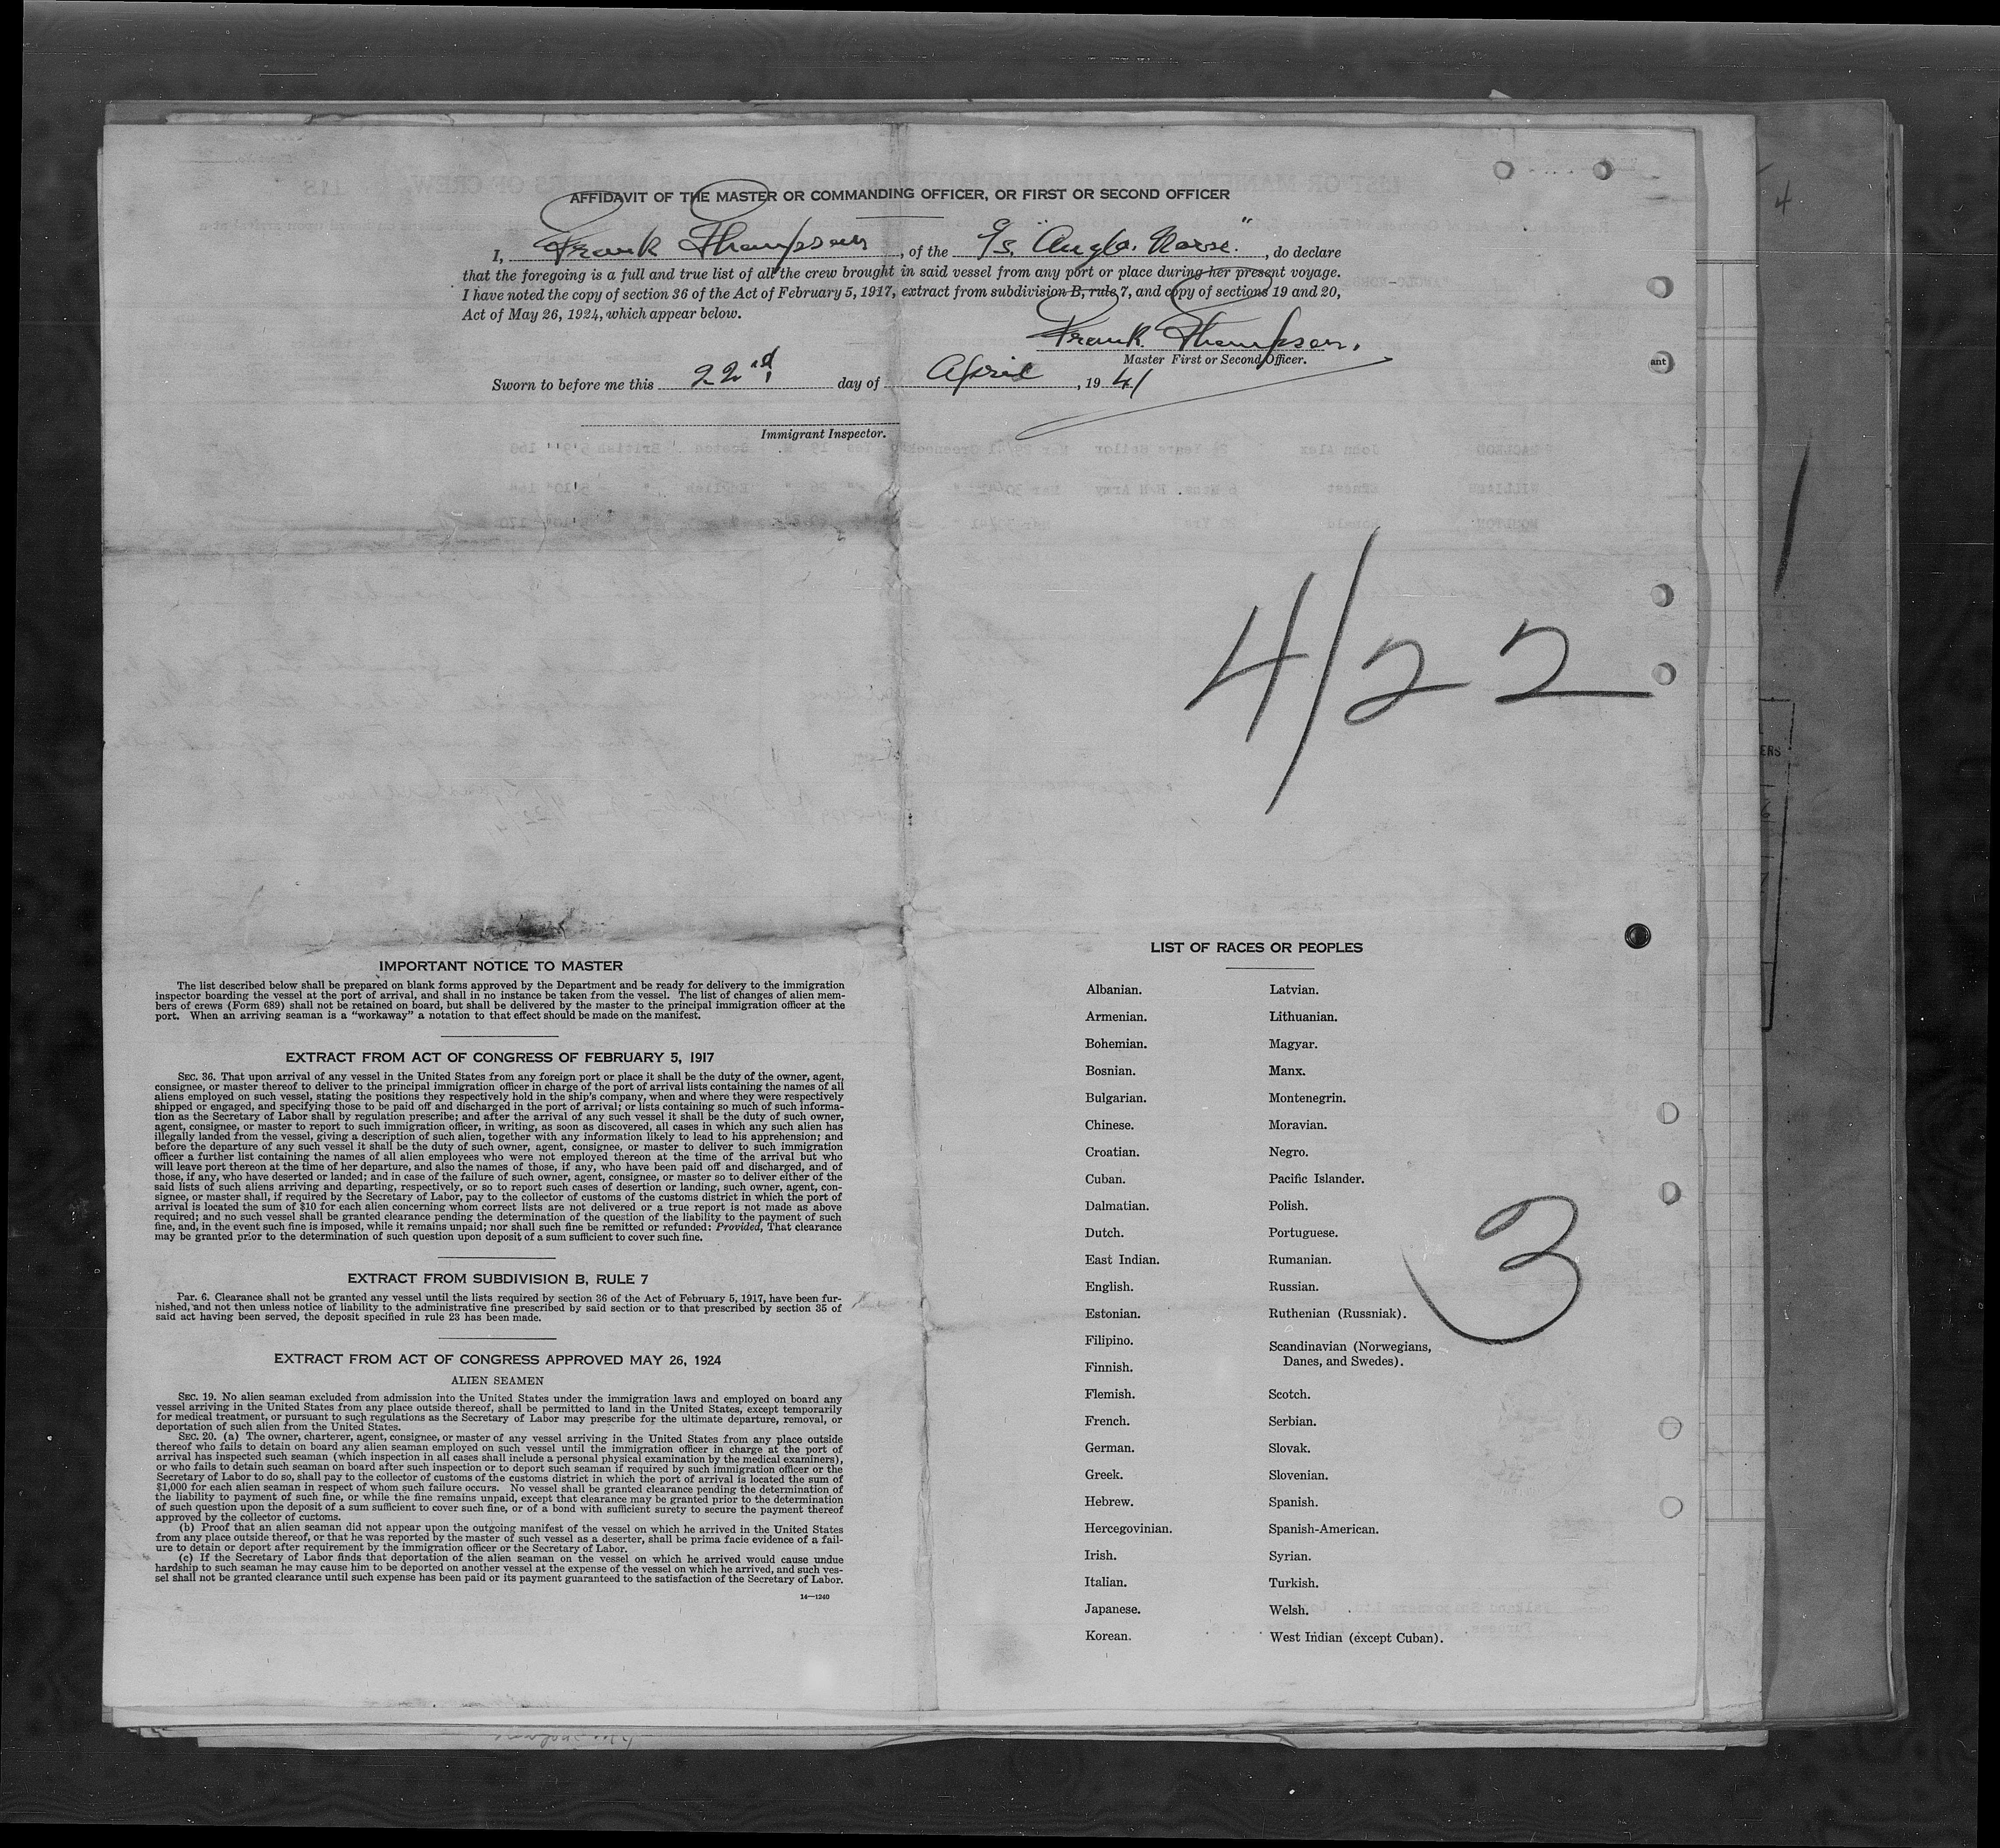 AFFIDAVIT OF THE MASTER OR COMMANDING OFFICER, OR FIRST OR SECOND OFFICER
I, Frank Thompson, of the S/s. "Anglo. Norse.", do declare
that the foregoing is a full and true list of all the crew brought in said vessel from any port or place during her present voyage.
I have noted the copy of section 36 of the Act of February 5, 1917, extract from subdivision B, rule 7, and copy of sections 19 and 20,
Act of May 26, 1924, which appear below.
Frank Thompson.
Master First or Second Officer.
Sworn to before me this 22nd day of April, 1941
Immigrant Inspector.
4/22
IMPORTANT NOTICE TO MASTER
The list described below shall be prepared on blank forms approved by the Department and be ready for delivery to the immigration
inspector boarding the vessel at the port of arrival, and shall in no instance be taken from the vessel. The list of changes of alien mem-
bers of crews (Form 689) shall not be retained on board, but shall be delivered by the master to the principal immigration officer at the
port. When an arriving seaman is a "workaway" a notation to that effect should be made on the manifest.
EXTRACT FROM ACT OF CONGRESS OF FEBRUARY 5, 1917
SEC. 36. That upon arrival of any vessel in the United States from any foreign port or place it shall be the duty of the owner, agent,
consignee, or master thereof to deliver to the principal immigration officer in charge of the port of arrival lists containing the names of all
aliens employed on such vessel, stating the positions they respectively hold in the ship's company, when and where they were respectively
shipped or engaged, and specifying those to be paid off and discharged in the port of arrival; or lists containing so much of such informa-
tion as the Secretary of Labor shall by regulation prescribe; and after the arrival of any such vessel it shall be the duty of such owner,
agent, consignee, or master to report to such immigration officer, in writing, as soon as discovered, all cases in which any such alien has
illegally landed from the vessel, giving a description of such alien, together with any information likely to lead to his apprehension; and
before the departure of any such vessel it shall be the duty of such owner, agent, consignee, or master to deliver to such immigration
officer a further list containing the names of all alien employees who were not employed thereon at the time of the arrival but who
will leave port thereon at the time of her departure, and also the names of those, if any, who have been paid off and discharged, and of
those, if any, who have deserted or landed; and in case of the failure of such owner, agent, consignee, or master so to deliver either of the
said lists of such aliens arriving and departing, respectively, or so to report such cases of desertion or landing, such owner, agent, con-
signee, or master shall, if required by the Secretary of Labor, pay to the collector of customs of the customs district in which the port of
arrival is located the sum of $10 for each alien concerning whom correct lists are not delivered or a true report is not made as above
required; and no such vessel shall be granted clearance pending the determination of the question of the liability to the payment of such
fine, and, in the event such fine is imposed, while it remains unpaid; nor shall such fine be remitted or refunded: Provided, That clearance
may be granted prior to the determination of such question upon deposit of a sum sufficient to cover such fine.
EXTRACT FROM SUBDIVISION B, RULE 7
PAR. 6. Clearance shall not be granted any vessel until the lists required by section 36 of the Act of February 5, 1917, have been fur-
nished, and not then unless notice of liability to the administrative fine prescribed by said section or to that prescribed by section 35 of
said act having been served, the deposit specified in rule 23 has been made.
EXTRACT FROM ACT OF CONGRESS APPROVED MAY 26, 1924
ALIEN SEAMEN
SEC. 19. No alien seaman excluded from admission into the United States under the immigration laws and employed on board any
vessel arriving in the United States from any place outside thereof, shall be permitted to land in the United States, except temporarily
for medical treatment, or pursuant to such regulations as the Secretary of Labor may prescribe for the ultimate departure, removal, or
deportation of such alien from the United States.
SEC. 20. (a) The owner, charterer, agent, consignee, or master of any vessel arriving in the United States from any place outside
thereof who fails to detain on board any alien seaman employed on such vessel until the immigration officer in charge at the port of
arrival has inspected such seaman (which inspection in all cases shall include a personal physical examination by the medical examiners),
or who fails to detain such seaman on board after such inspection or to deport such seaman if required by such immigration officer or the
Secretary of Labor to do so, shall pay to the collector of customs of the customs district in which the port of arrival is located the sum of
$1,000 for each alien seaman in respect of whom such failure occurs. No vessel shall be granted clearance pending the determination of
the liability to payment of such fine, or while the fine remains unpaid, except that clearance may be granted prior to the determination
of such question upon the deposit of a sum sufficient to cover such fine, or of a bond with sufficient surety to secure the payment thereof
approved by the collector of customs.
(b) Proof that an alien seaman did not appear upon the outgoing manifest of the vessel on which he arrived in the United States
from any place outside thereof, or that he was reported by the master of such vessel as a deserter, shall be prima facie evidence of a fail-
ure to detain or deport after requirement by the immigration officer or the Secretary of Labor.
(c) If the Secretary of Labor finds that deportation of the alien seaman on the vessel on which he arrived would cause undue
hardship to such seaman he may cause him to be deported on another vessel at the expense of the vessel on which he arrived, and such ves-
sel shall not be granted clearance until such expense has been paid or its payment guaranteed to the satisfaction of the Secretary of Labor.
14—1240
LIST OF RACES OR PEOPLES
Albanian. Latvian.
Armenian. Lithuanian.
Bohemian. Magyar.
Bosnian. Manx.
Bulgarian. Montenegrin.
Chinese. Moravian.
Croatian. Negro.
Cuban. Pacific Islander.
Dalmatian. Polish.
Dutch. Portuguese.
East Indian. Rumanian.
English. Russian.
Estonian. Ruthenian (Russniak).
Filipino. Scandinavian (Norwegians,
Finnish. Danes, and Swedes).
Flemish. Scotch.
French. Serbian.
German. Slovak.
Greek. Slovenian.
Hebrew. Spanish.
Hercegovinian. Spanish-American.
Irish. Syrian.
Italian. Turkish.
Japanese. Welsh.
Korean. West Indian (except Cuban).
3
ant
4
ERS